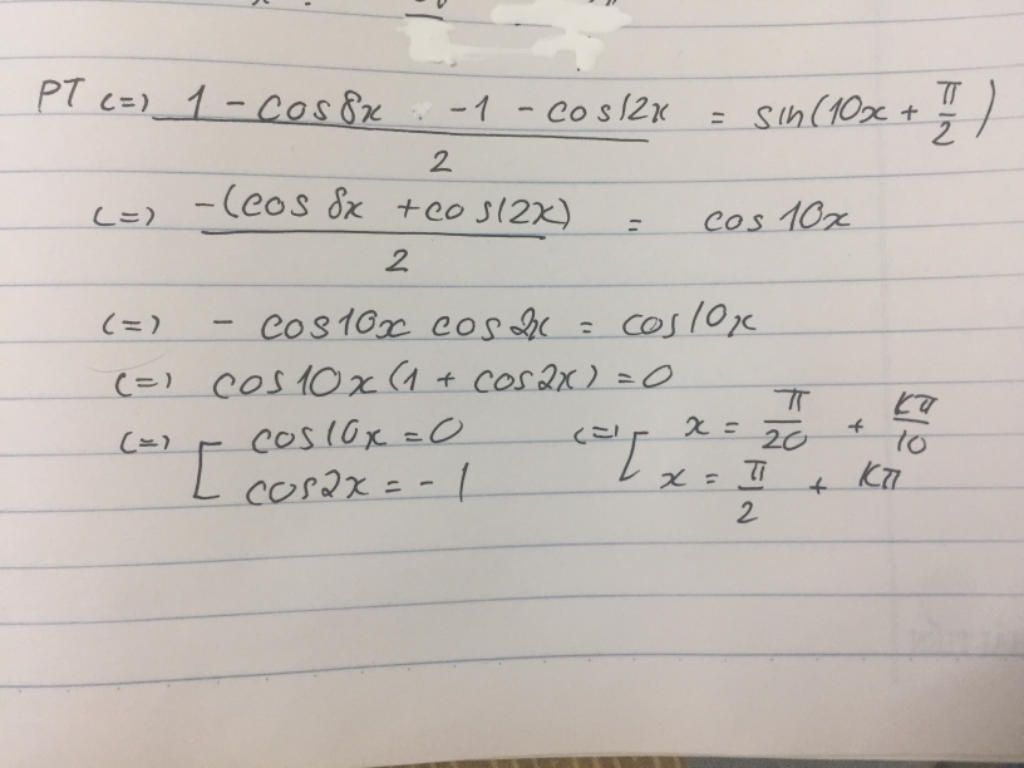 PT <=> (1 - cos8x - 1 - cos12x)/2 = sin(10x + π/2)
<=> -(cos 8x + cos12x)/2 = cos 10x
<=> - cos10x cos 2x = cos10x
<=> cos10x (1 + cos2x) = 0
<=> [ cos10x = 0 <=> [ x = π/20 + Kπ/10
cos2x = -1 x = π/2 + Kπ